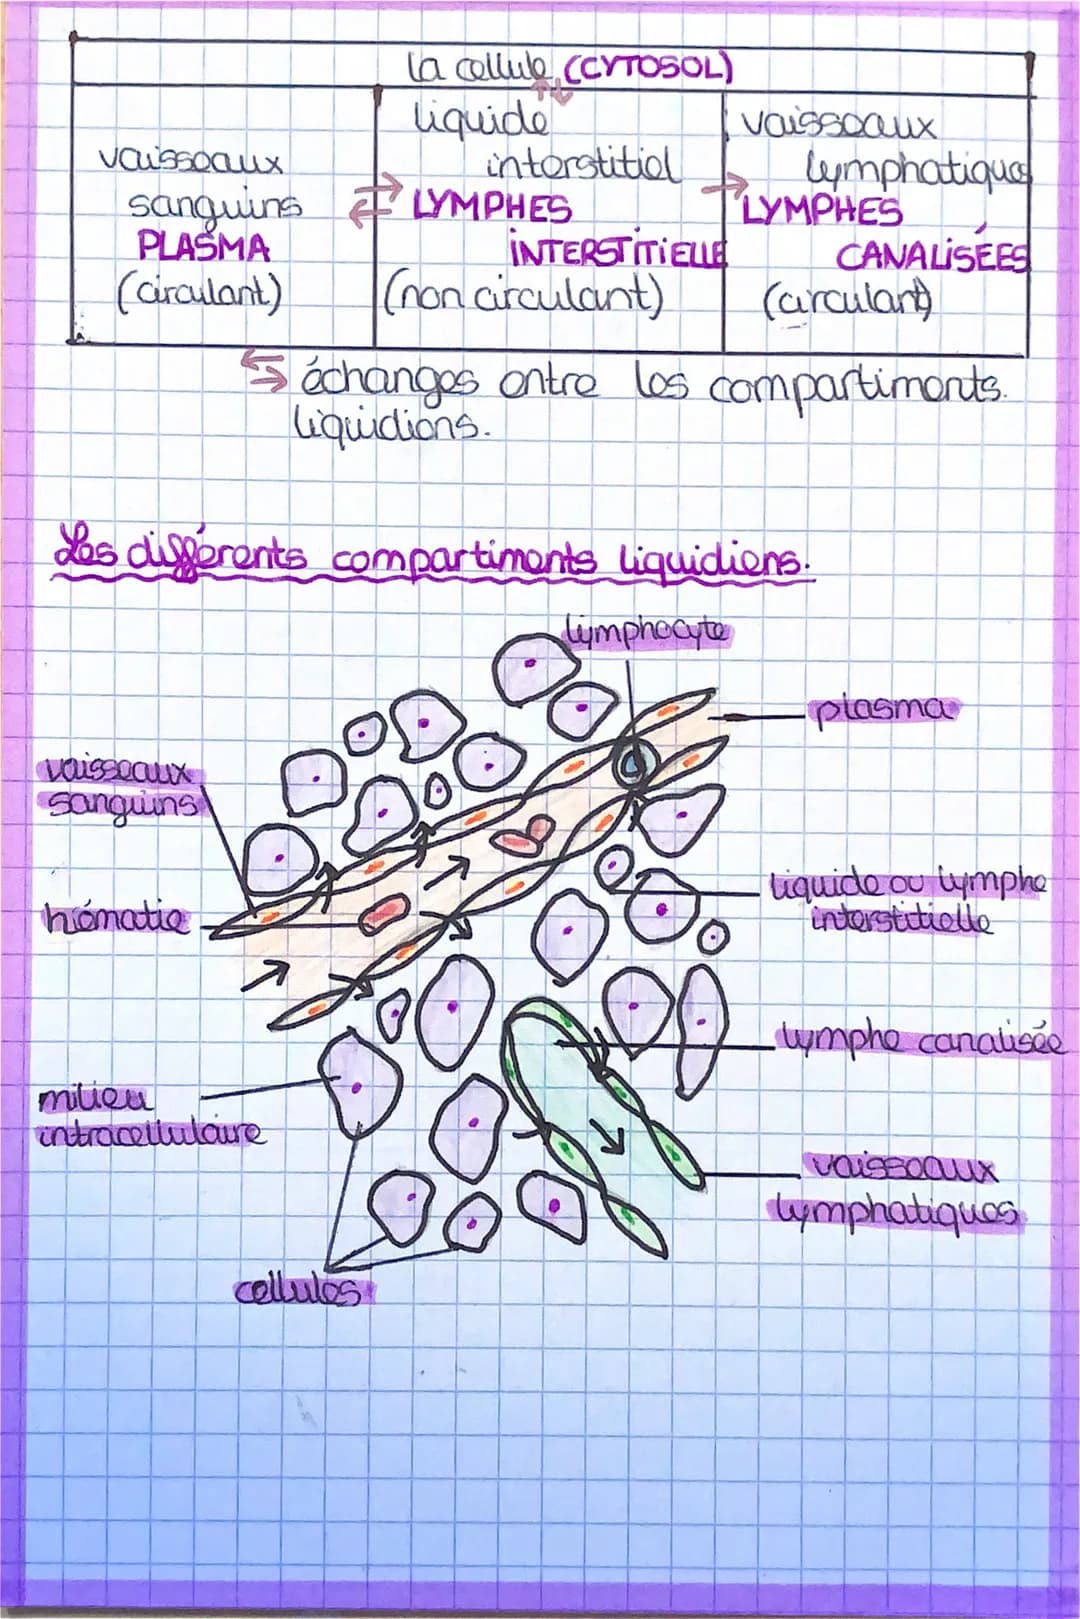 la cellule (CYTOSOL)
vaisseaux
sanguins
PLASMA
(circulant)
liquide
interstitiel
LYMPHES
INTERSTITIELLE
(non circulant)
vaisseaux
lymphatique
LYMPHES
CANALISÉES
(circulant)
échanges entre les compartiments
liquidiens.
Les différents compartiments liquidiens.
lymphocyte
plasma
vaisseaux
sanguins
hématie
liquide ou lymphe
interstitielle
lymphe canalisée
milieu
intracellulaire
vaisseaux
lymphatiques
cellules